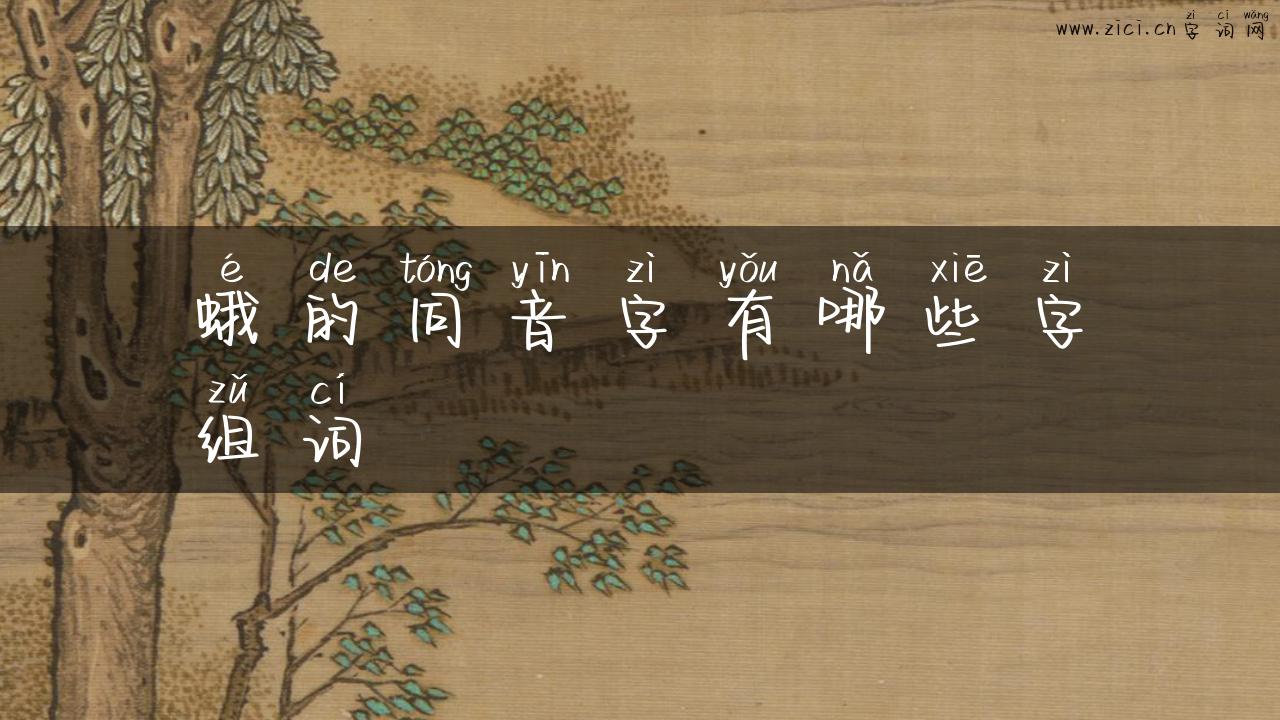 zì cí wǎng
www.zici.cn 字词网
é de tóng yīn zì yǒu nǎ xiē zì
蛾的同音字有哪些字
zǔ cí
组词